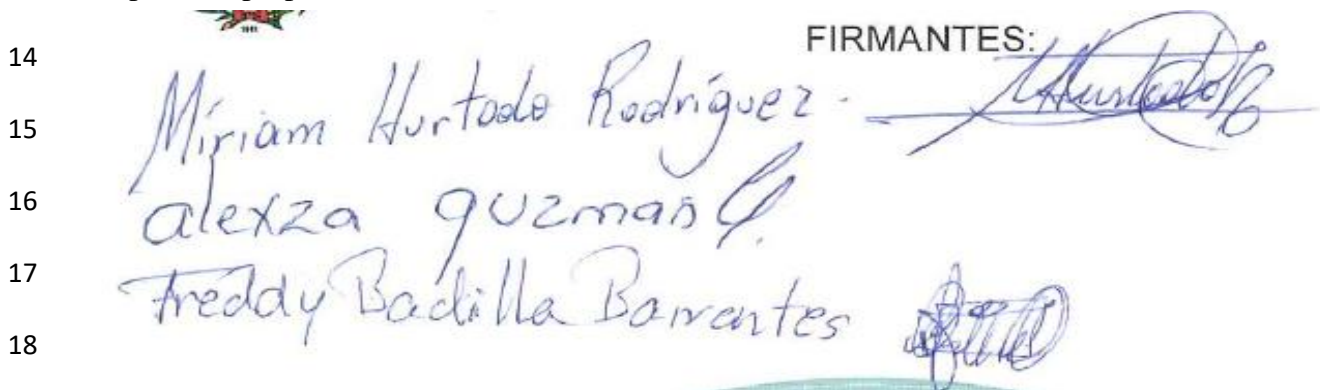 14 FIRMANTES:
15 Míriam Hurtado Rodríguez.
16 alexza guzman
17 Freddy Badilla Barrantes
18